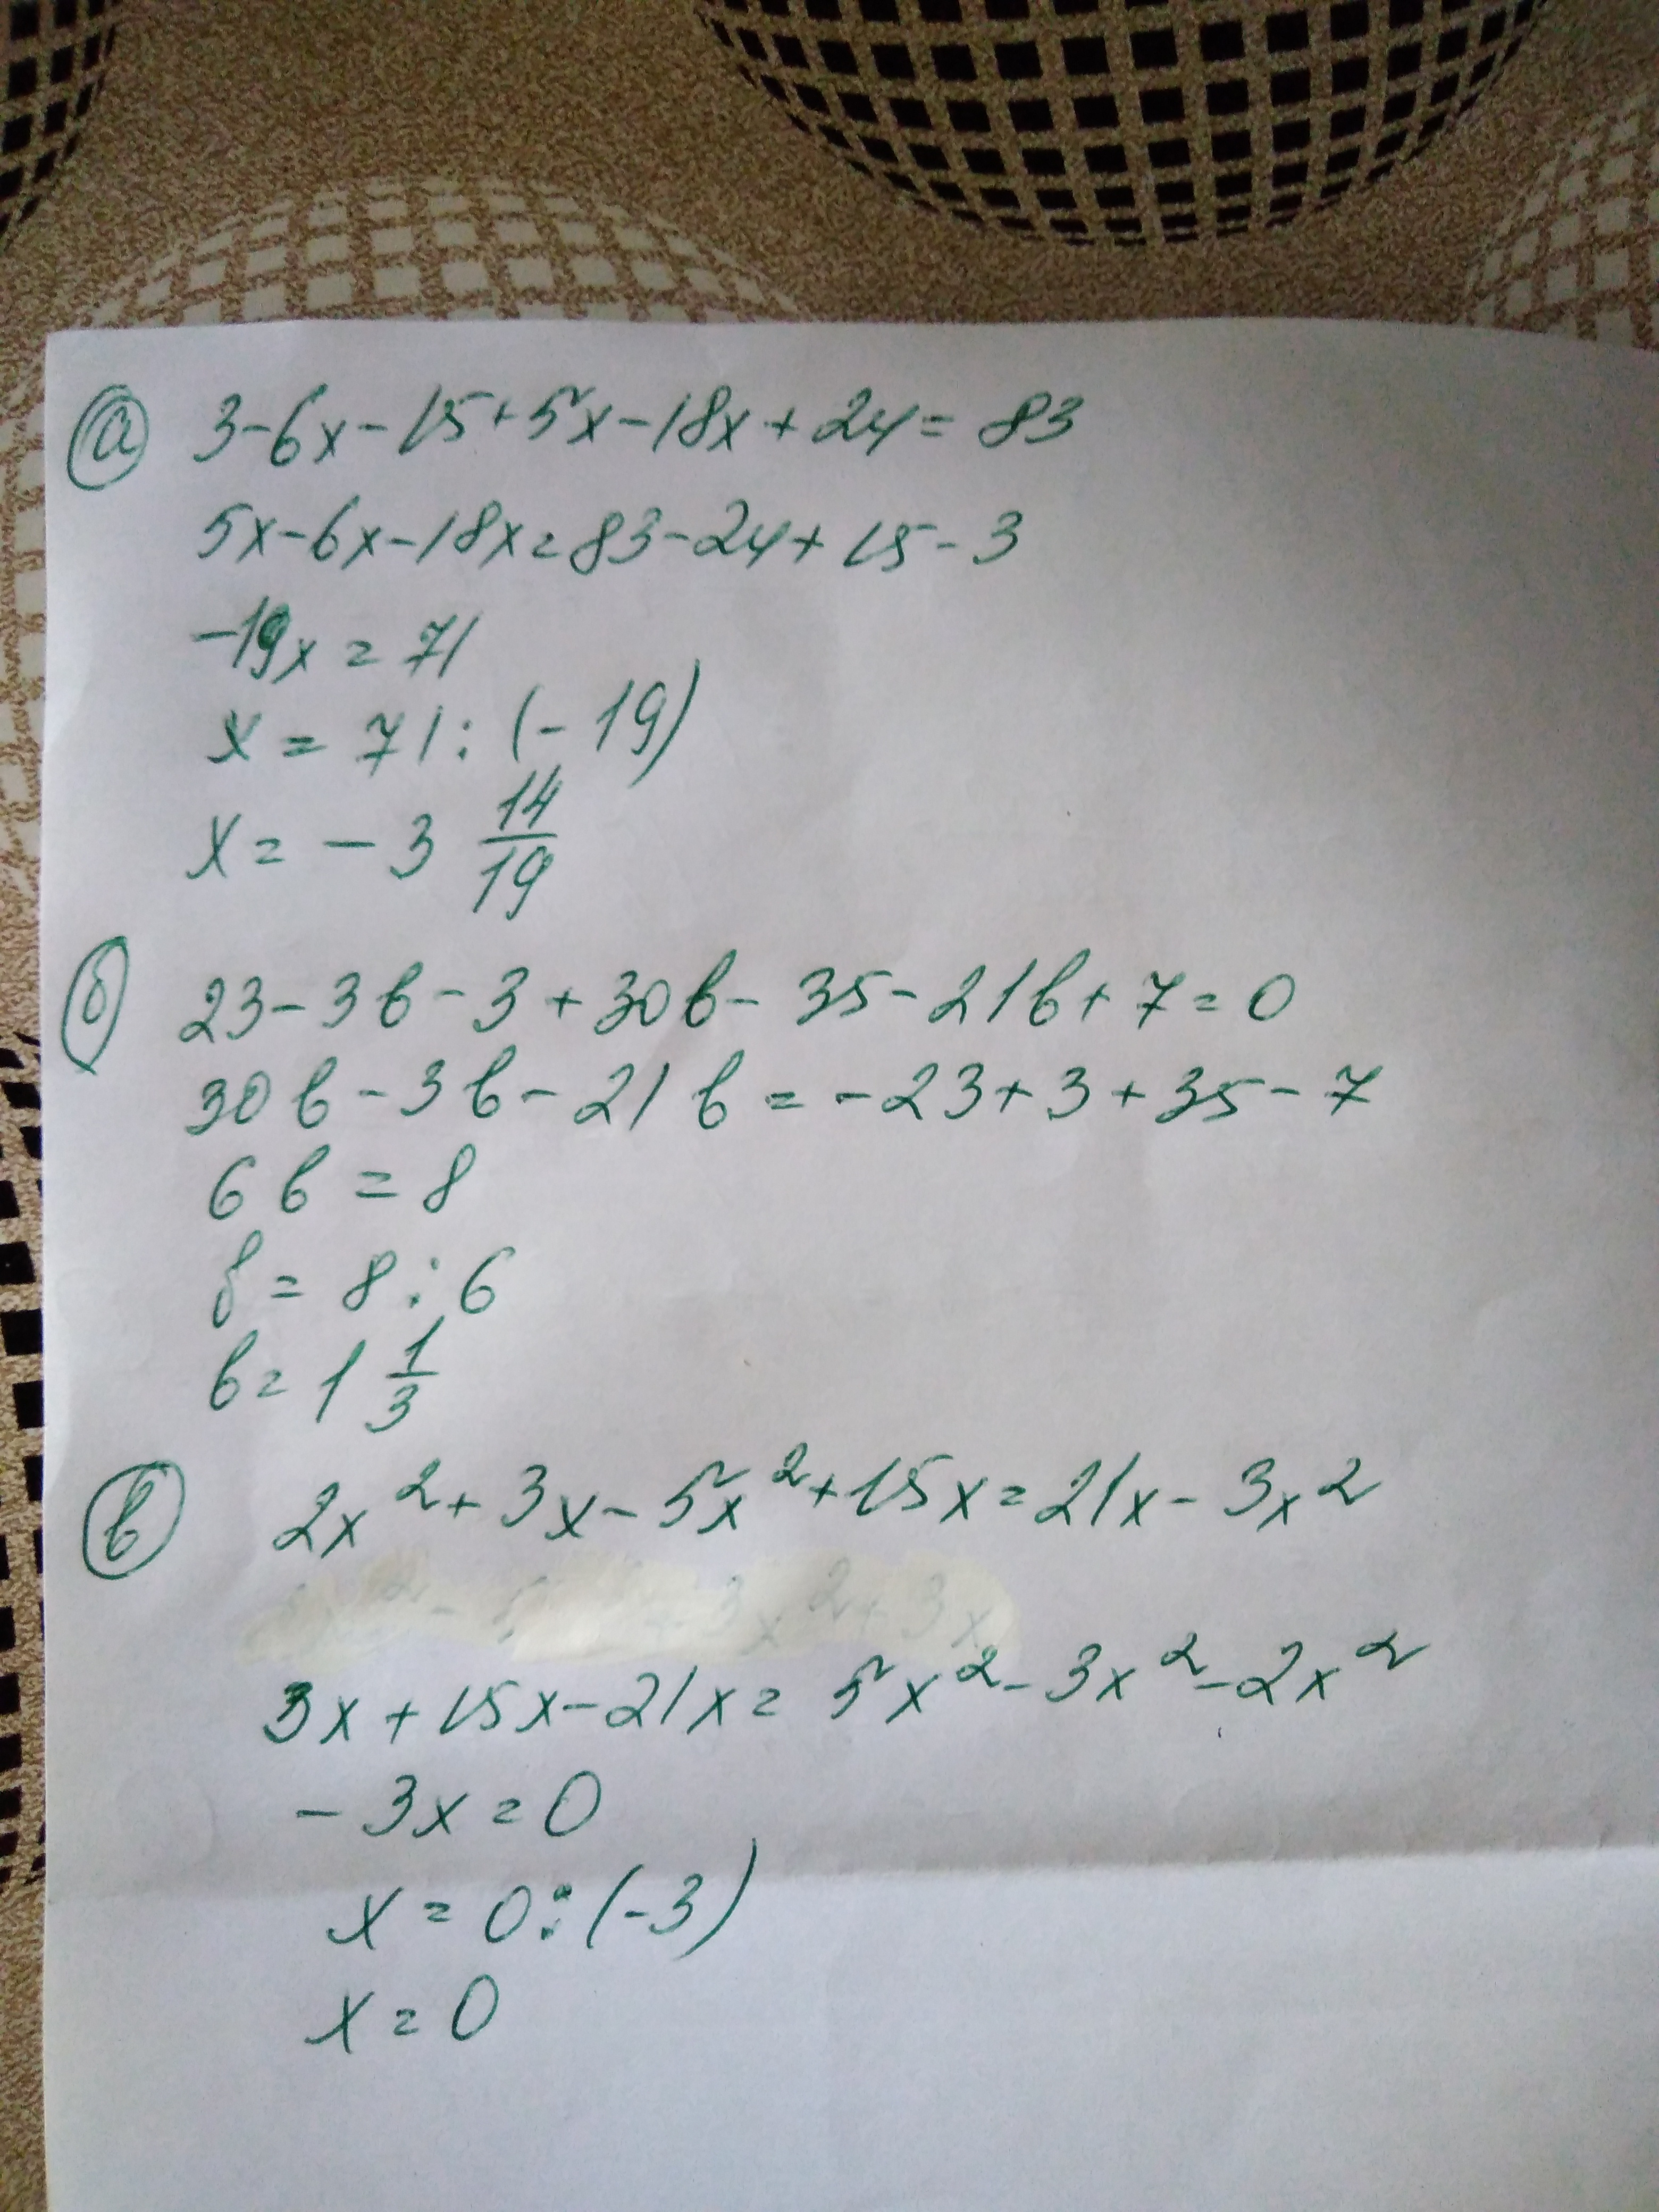 а 3-6x-15+5x-18x+24=83
5x-6x-18x=83-24+15-3
-19x=71
x=71:(-19)
x=-3 14/19
б 23-3b-3+30b-35-21b+7=0
30b-3b-21b=-23+3+35-7
6b=8
b=8:6
b=1 1/3
в 2x²+3x-5x²+15x=21x-3x²
3x+15x-21x=5x²-3x²-2x²
-3x=0
x=0:(-3)
x=0